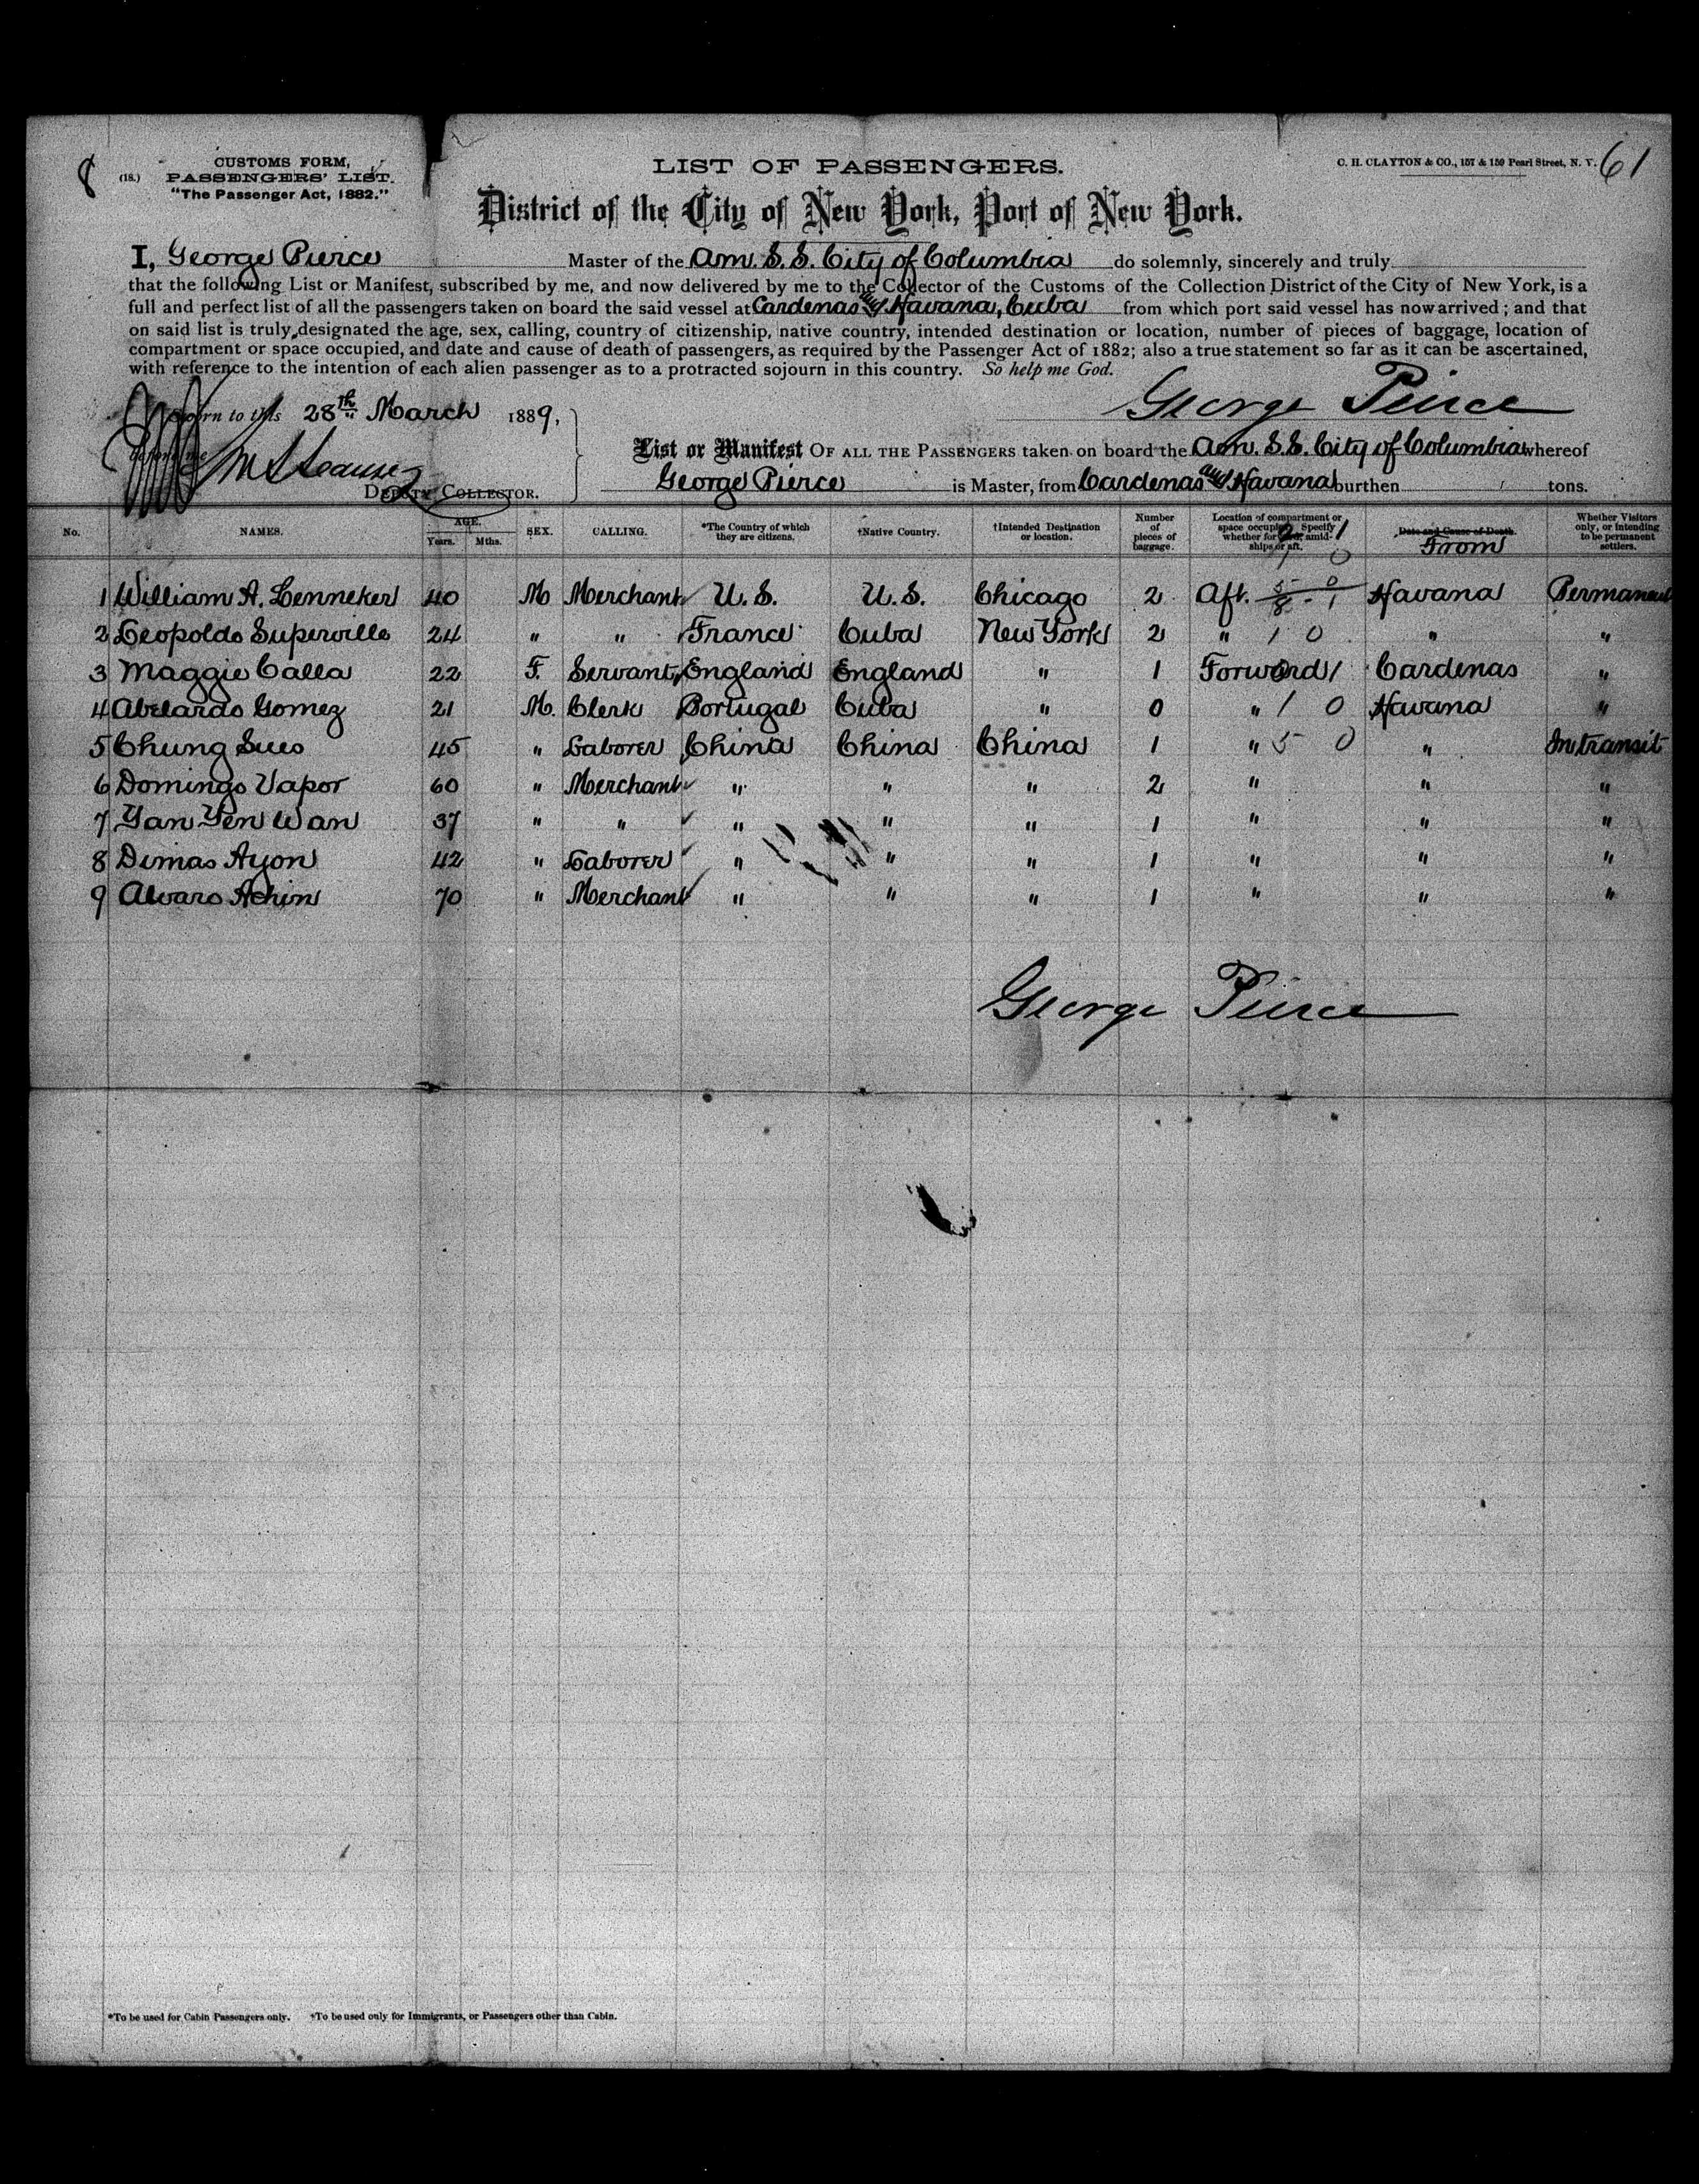 CUSTOMS FORM,
(18.) PASSENGERS' LIST.
"The Passenger Act, 1882."
LIST OF PASSENGERS.
C. H. CLAYTON & CO., 157 & 159 Pearl Street, N. Y. 61
District of the City of New York, Port of New York.
I, George Pierce Master of the Am. S. S. City of Columbia do solemnly, sincerely and truly
that the following List or Manifest, subscribed by me, and now delivered by me to the Collector of the Customs of the Collection District of the City of New York, is a
full and perfect list of all the passengers taken on board the said vessel at Cardenas and Havana, Cuba from which port said vessel has now arrived; and that
on said list is truly designated the age, sex, calling, country of citizenship, native country, intended destination or location, number of pieces of baggage, location of
compartment or space occupied, and date and cause of death of passengers, as required by the Passenger Act of 1882; also a true statement so far as it can be ascertained,
with reference to the intention of each alien passenger as to a protracted sojourn in this country. So help me God.
Sworn to this 28th March 1889, George Pierce
List or Manifest OF ALL THE PASSENGERS taken on board the Am. S.S. City of Columbia whereof
George Pierce is Master, from Cardenas and Havana burthen tons.
DEPUTY COLLECTOR.
No. NAMES. AGE. Years. Mths. SEX. CALLING. *The Country of which they are citizens. †Native Country. †Intended Destination or location. Number of pieces of baggage. Location of compartment or space occupied. Specify whether forward, amidships or aft. Date and Cause of Death. From Whether Visitors only, or intending to be permanent settlers.
1 William A. Lenneker 40 M Merchant U.S. U.S. Chicago 2 Aft. 5 0 8 - 1 Havana Permanent
2 Leopoldo Superville 24 " " France Cuba New York 2 " 1 0 " "
3 Maggie Calla 22 F. Servant England England " 1 Forward 1 Cardenas "
4 Abelardo Gomez 21 M. Clerk Portugal Cuba " 0 " 1 0 Havana "
5 Chung Sues 45 " Laborer China China China 1 " 5 0 " In transit
6 Domingo Vapor 60 " Merchant " " " 2 " " "
7 Yan Yen Wan 37 " " " " " 1 " " "
8 Dimas Ayon 42 " Laborer " " " 1 " " "
9 Alvaro Achin 70 " Merchant " " " 1 " " "
George Pierce
*To be used for Cabin Passengers only. †To be used only for Immigrants, or Passengers other than Cabin.